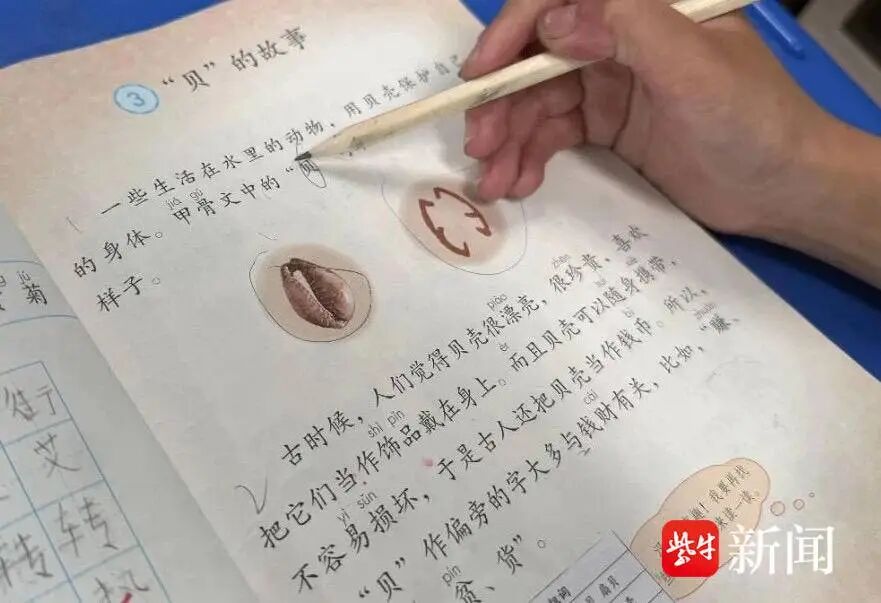 3 "贝"的故事
一些生活在水里的动物，用贝壳保护自己
jiǎ gǔ
的身体。甲骨文中的"贝
样子。
piào zhēn
古时候，人们觉得贝壳很漂亮，很珍贵，喜欢
shì pǐn ér
把它们当作饰品戴在身上。而且贝壳可以随身携带，
yì sǔn bì
不容易损坏，于是古人还把贝壳当作钱币。所以，
cái zhuàn
"贝"作偏旁的字大多与钱财有关，比如，"赚、
pín
贫、货"。
jú
菊
艾
转 转
紫牛新闻